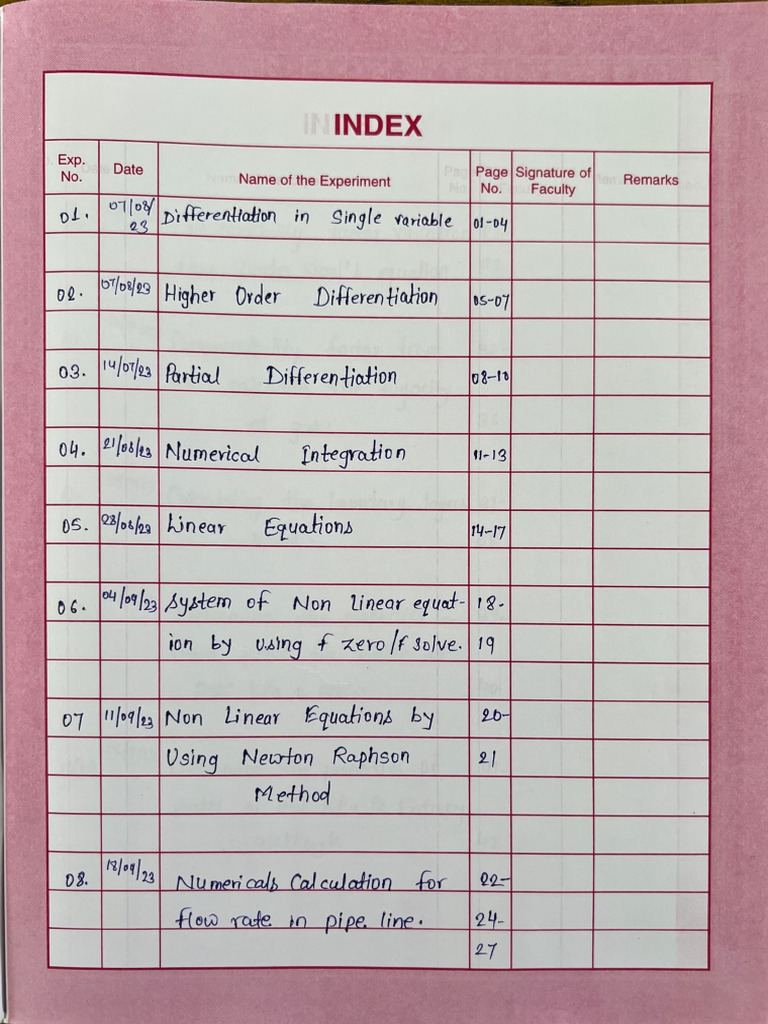 INDEX
Exp. No. Date Name of the Experiment Page No. Signature of Faculty Remarks
01. 07/08/23 Differentiation in Single variable 01-04
02. 07/08/23 Higher Order Differentiation 05-07
03. 14/07/23 Partial Differentiation 08-10
04. 21/08/23 Numerical Integration 11-13
05. 28/08/23 Linear Equations 14-17
06. 04/09/23 System of Non linear equat- 18-
ion by using f zero/f solve. 19
07 11/09/23 Non Linear Equations by 20-
Using Newton Raphson 21
Method
08. 18/09/23 Numericals Calculation for 22-
flow rate in pipe line. 24-
27